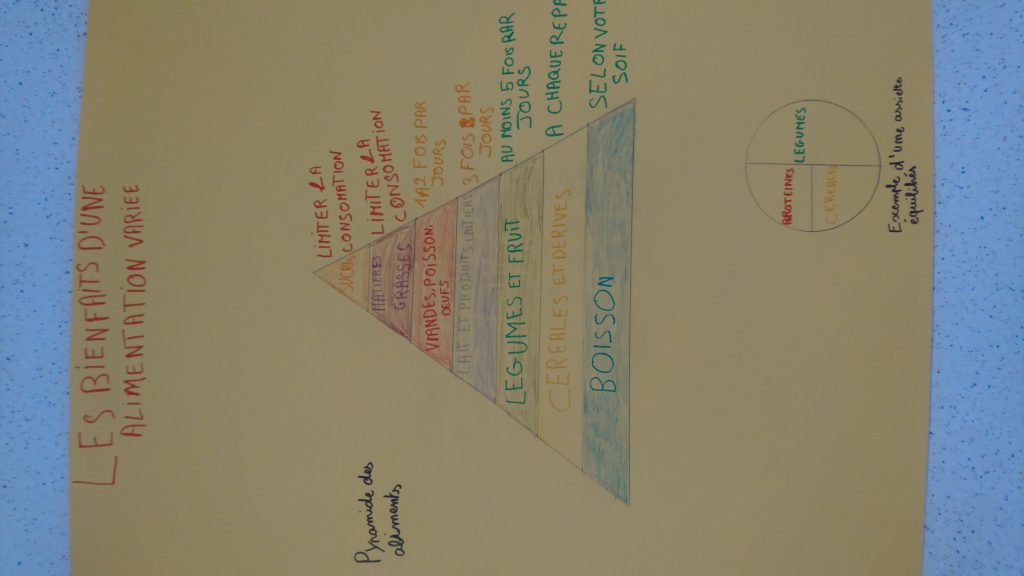 LES BIENFAITS D'UNE
ALIMENTATION VARIEE
Pyramide des
aliments
SUCRES
LIMITER LA
CONSOMATION
MATIERES
GRASSES
LIMITER LA
CONSOMATION
VIANDES, POISSON,
OEUFS
1A2 FOIS PAR
JOURS
LAIT ET PRODUITS LAITIERS
3 FOIS PAR
JOURS
LEGUMES ET FRUIT
AU MOINS 5 FOIS PAR
JOURS
CEREALES ET DERIVES
A CHAQUE REPA
BOISSON
SELON VOTR
SOIF
PROTEINES
CEREALES
LEGUMES
Exemple d'une assiette
équilibés